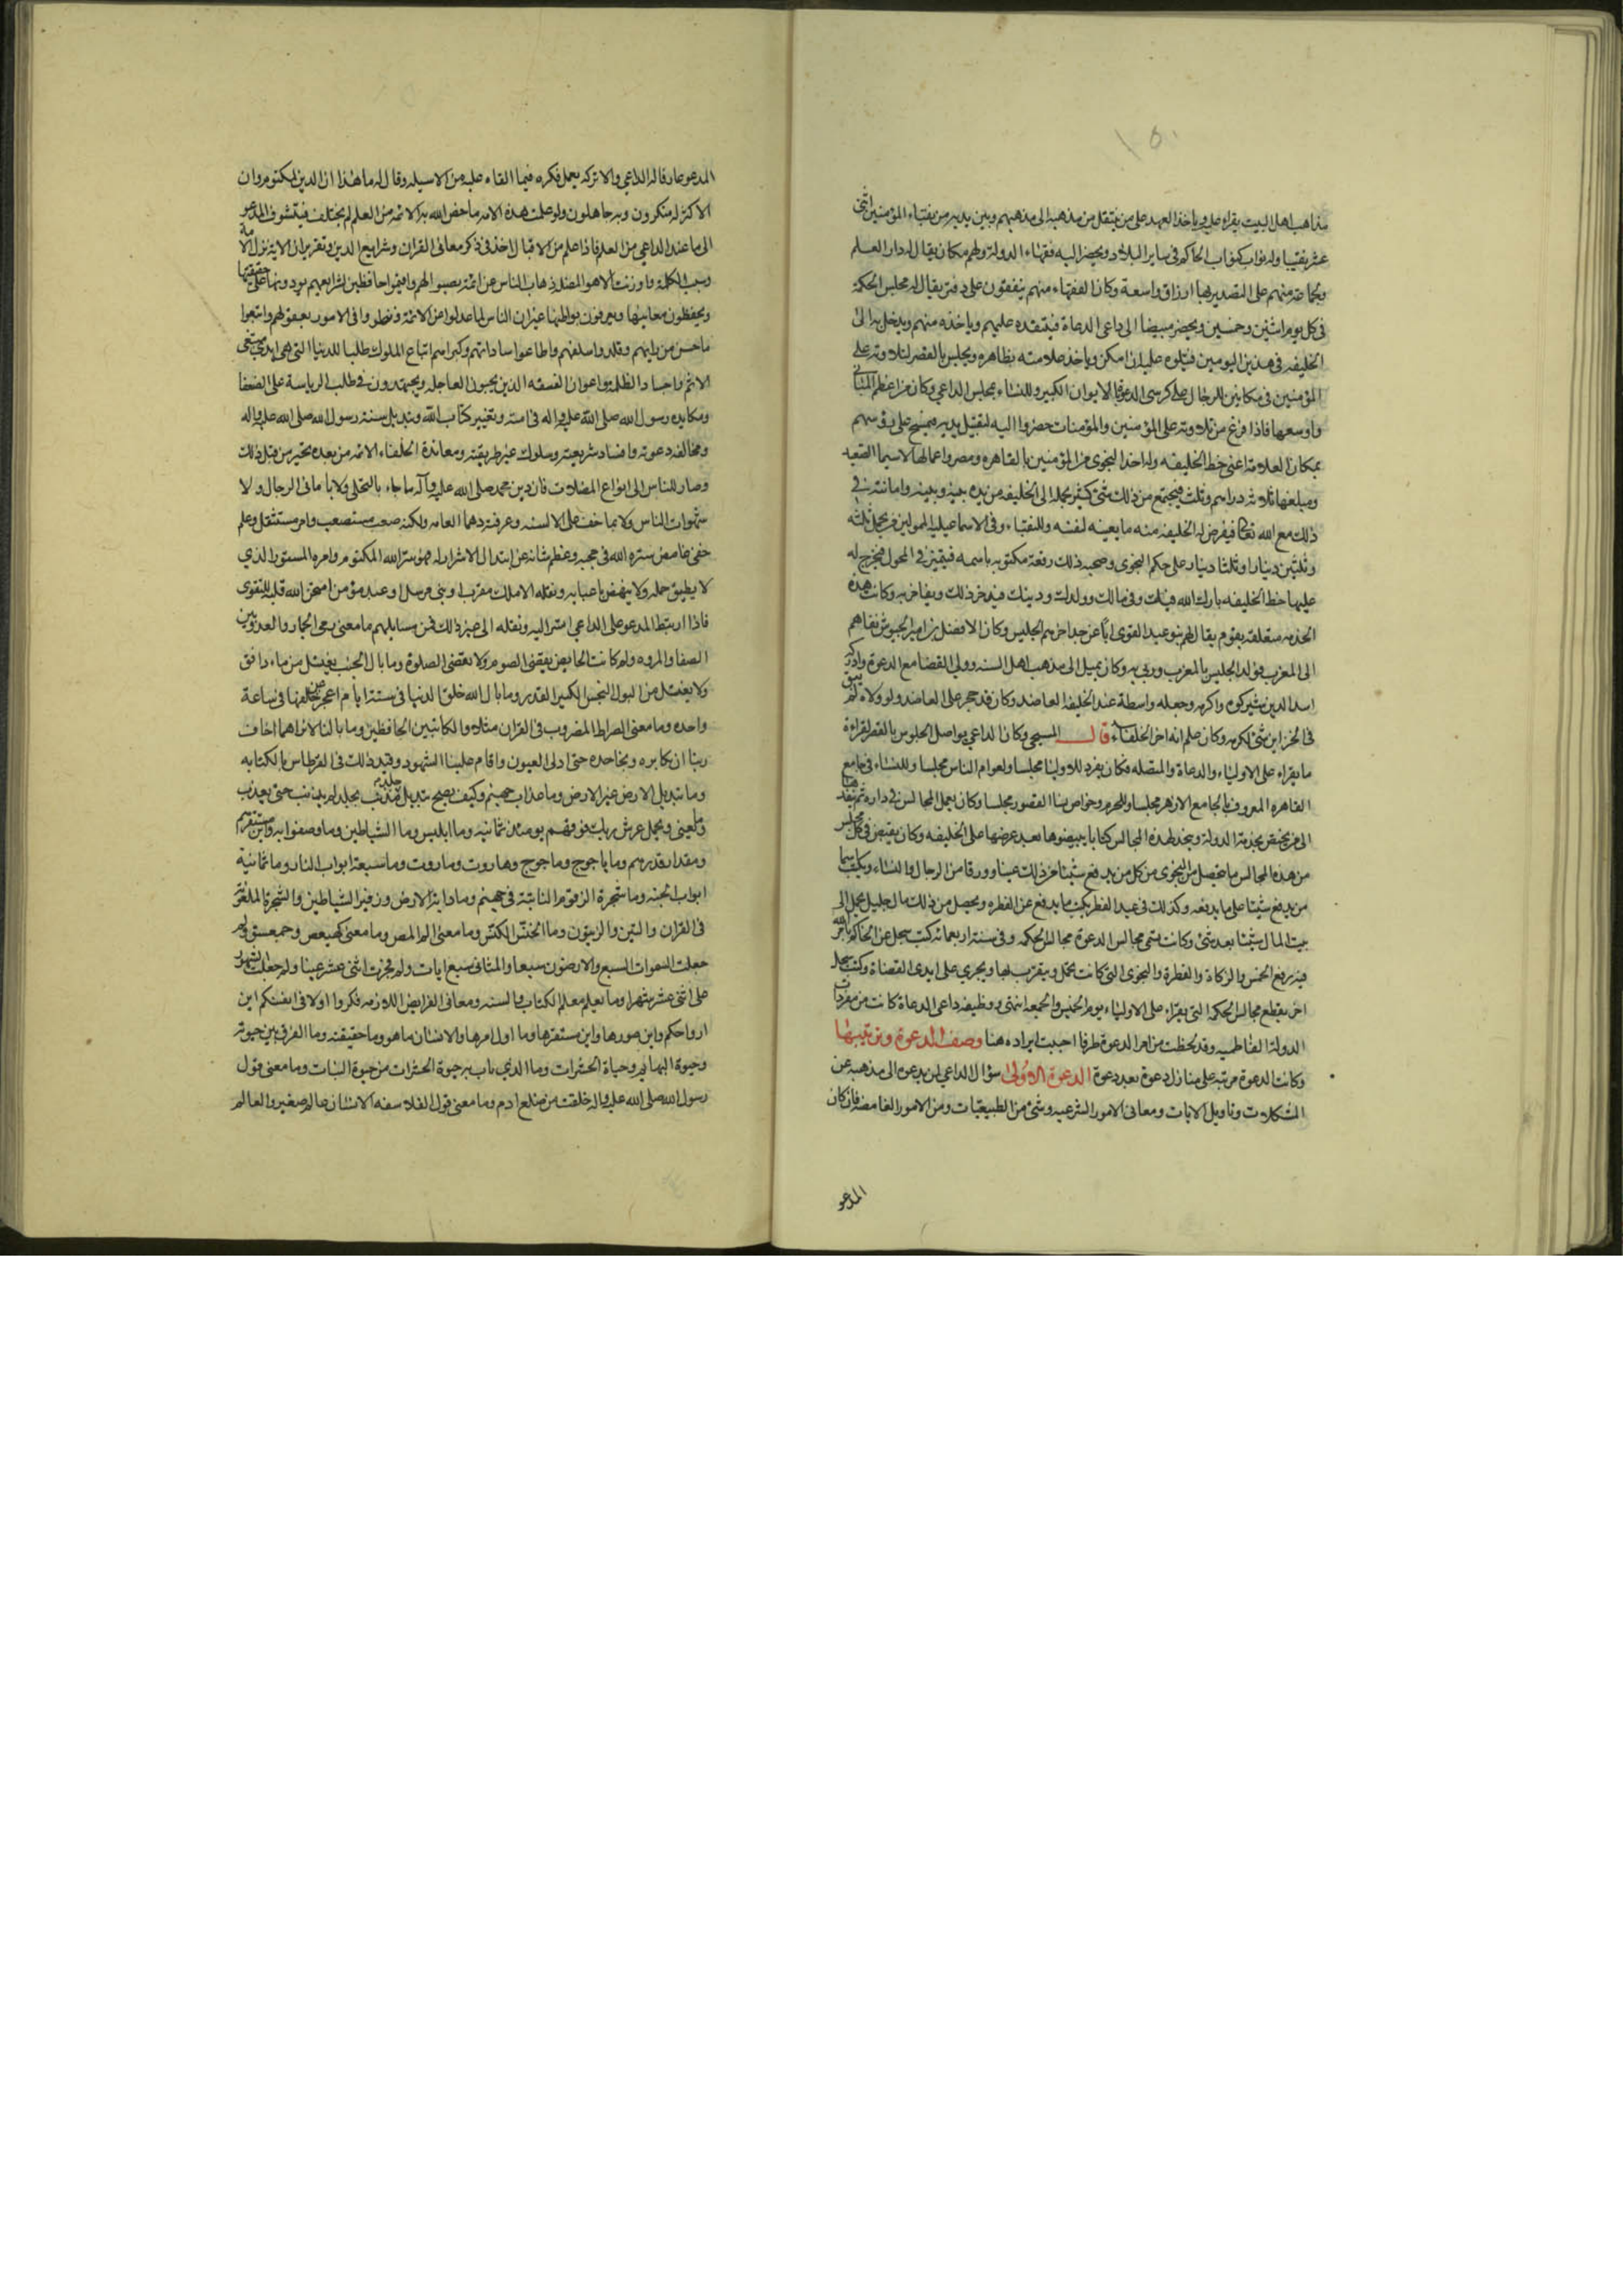 ١٥٠
مذاهب اهل البيت يقراء عليه وياخذ العهد على من ينتقل من مذهبه الى مذهبهم وبين يديه من نقباء المؤمنين اثنى
عشر نقيبا وله نواب كنواب الحاكم فى ساير البلاد ويحضر اليه فقهاء الدولة ولهم مكان يقال له دار العلم
ولجماعة منهم على التصدير بها ارزاق واسعة وكان الفقهاء منهم يتفقون على دفتر يقال له مجلس الحكمة
فى كل يوم اثنين وخميس ويحضر مبيضا الى داعى الدعاة فينفذه عليهم وياخذه منهم ويدخل به الى
الخليفه فى هذين اليومين فيتلوه عليه ان امكن وياخذ علامته بظاهره ويجلس بالقصر لتلاوته على
المؤمنين فى مكانين للرجال على كرسى الدعوة بالايوان الكبير وللنساء بمجلس الداعى وكان من اعظم المبانى
واوسعها فاذا فرغ من تلاوته على المؤمنين والمؤمنات حضروا اليه لتقبيل يديه فيمسح على رؤسهم
بمكان العلامة اعنى خط الخليفه وله اخذ النجوى من المؤمنين بالقاهره ومصر واعمالها لاسيما الصعيد
ومبلغها ثلاثه دراهم وثلث فيجتمع من ذلك شئ كثير يحمله الى الخليفه من يده بينه وبينه وامانته فى
ذلك مع الله تعالى فيفرض له الخليفه منه ما يعينه لنفسه وللنقباء وفى الاسماعيليه المموليين من يحمل ثلثه
وثلثين دينارا وثلثا دينار على حكم النجوى وصحبه ذلك رقعة مكتوبه باسمه فيتميز فى المحول فيخرج له
عليها خط الخليفه بارك الله فيك وفى مالك وولدك ودينك فيدخر ذلك ويفاخر به وكانت هذه
الخدمه متعلقة بقوم يقال لهم بنو عبد القوى ابا عن جد اخرهم الجليس وكان الافضل بن امير الجيوش نفاهم
الى المغرب فولد الجليس بالمغرب وربى به وكان يميل الى مذهب اهل السنه وولى القضا مع الدعوة وادركه
اسد الدين شيركوه واكرمه وجعله واسطة عند الخليفه العاضد وكان قد حجر على العاضد ولولاه لم يبق
فى الخزاين شئ لكرمه وكان علم انه اخر الخلفاء قال المسبحى وكان الداعى يواصل الجلوس بالقصر لقراءة
ما يقراء على الاولياء والدعاة والمتصله فكان يفرد للاوليا مجلسا ولعوام الناس مجلسا وللنساء فى جامع
القاهره المعروف بالجامع الازهر مجلسا وللحرم وخواص نسا القصور مجلسا وكان يعمل المجالس فى داره ثم ينفذها
الى من يختص بخدمة الدولة ويتخذ لهذه المجالس كتابا يبيضوها بعد عرضها على الخليفه وكان يقبض فى كل مجلس
من هذه المجالس ما يتحصل من النجوى من كل من يدفع شيئا من ذلك عينا وورقا من الرجال والنساء ويكتب اسما
من يدفع شيئا على ما يدفعه وكذلك فى عيد الفطر يكتب ما يدفع عن الفطره ويحصل من ذلك مال جليل يحمل الى
بيت المال شيئا بعد شئ وكانت تسمى مجالس الدعوة مجالس الحكمه وفى سنة اربعمائه كتب سجل عن الحاكم بامر الله
فيه رفع الخمس والزكاة والفطرة والنجوى التى كانت تحمل ويتقرب بها ويجرى على ايدى القضاة وكتب سجل
اخر بقطع مجالس الحكمه التى تقراء على الاولياء يوم الخميس والجمعه انتهى ووظيفه داعى الدعاة كانت من مفردات
الدولة الفاطميه وقد لخظت من امر الدعوة طرفا احببت ايراده هنا وصف الدعوة وترتيبها
وكانت الدعوة مرتبه على منازل دعوة بعد دعوة الدعوة الاولى سؤال الداعى لمن يدعوه الى مذهبه عن
المشكلات وتاويل الايات ومعانى الامور الشرعيه وشئ من الطبيعيات ومن الامور الغامضه فان كان
المدعو
المدعو عارفا له الداعى والا تركه يعمل فكره فيما القاء عليه من الاسيله وقال له ما هذا ان الدين لمكتوم وان
الاكثر له منكرون وبه جاهلون ولو علمت هذه الامه ما خص الله به الائمه من العلم لم يختلف فيتشوف المدعو
الى ما عند الداعى من العلم فاذا علم منه الاقبال اخذ فى ذكر معانى القران وشرايع الدين وتقرير ان الافة نزل بالامة
وشتت الكلمة واورثت الاهوا المضله ذهاب الناس عن ائمة نصبوا لهم واقيموا حافظين لشرايعهم يودونها على حقيقتها
ويحفظون معانيها ويعرفون بواطنها غير ان الناس لما عدلوا عن الائمة ونظروا فى الامور بعقولهم واتبعوا
ما حسن من رايهم وقلدوا سلفهم واطاعوا ساداتهم وكبراهم اتباع الملوك طلبا للدنيا التى هى ايدى متبعى
الاثم واجناد الظلمة واعوان الفسقه الذين يحبون العاجله ويجتهدون فى طلب الرياسة على الضعفا
ومكايده رسول الله صلى الله عليه واله فى امته وتغيير كتاب الله وتبديل سنة رسول الله صلى الله عليه واله
ومخالفة دعوته وافساد شريعته وسلوك غير طريقته ومعاندة الخلفاء الائمه من بعده تحير من قبل ذلك
وصار الناس الى انواع الضلالات فان دين محمد صلى الله عليه وآله ما جاء بالتحلى ولا بامانى الرجال ولا
شهوات الناس ولا بما خف على الالسنه وعرفته دهما العامه ولكنه صعب مستصعب وامر مستثقل وعلم
خفى غامض ستره الله فى حجبه وعظم شانه عن ابتذال الاشرار له فهو سر الله المكتوم وامره المستور الذى
لا يطيق حمله ولا ينهض باعبايه وثقله الا ملك مقرب او نبى مرسل او عبد مؤمن امتحن الله قلبه للتقوى
فاذا ارتبط المدعو على الداعى انس اليه ونقله الى غير ذلك فمن مسايلهم ما معنى رمى الجمار والعدو بين
الصفا والمروه ولم كانت الحايض تقضى الصوم ولا تقضى الصلوة وما بال الجنب يغتسل من ماء دافق
ولا يغتسل من البول النجس الكثير القذر وما بال الله خلق الدنيا فى ستة ايام اعجز عن خلقها فى ساعة
واحده وما معنى الصراط المضروب فى القران مثلا والكاتبين الحافظين وما بالنا لا نراهما اخاف
ربنا ان نكابره ونجاحده حتى ادلى العيون واقام علينا الشهود وقيد ذلك فى القرطاس بالكتابه
وما تبديل الارض غير الارض وما عذاب جهنم وكيف يصح تبديل جلد مذنب بجلد لم يذنب حتى يعذب
وما معنى ويحمل عرش ربك فوقهم يومئذ ثمانيه وما ابليس وما الشياطين وما وصفوا به واين مستقرهم
ومقدار قدرهم وما ياجوج وماجوج وهاروت وماروت وما سبعة ابواب النار وما ثمانية
ابواب الجنه وما شجرة الزقوم النابتة فى جهيم وما دابة الارض وزفير الشياطين والشجرة الملعونة
فى القران والتين والزيتون وما الخنس الكنس وما معنى الم المص وما معنى كهيعص وحمعسق ولم
جعلت السموات السبع والارضون سبعا والمثانى سبع ايات ولم فجرت اثنى عشر عينا ولم جعلت الشهور
على اثنى عشر شهرا وما يعلم معلم الكتاب والسنه ومعانى الفرايض اللازمه فكروا اولا فى انفسكم اين
ارواحكم واين صورها واين مستقرها وما اول امرها والانسان ما هو وما حقيقته وما الفرق بين حيوته
وحيوة البهايم وحياة الحشرات وما الذى بانت به حيوة الحشرات من حيوة النبات وما معنى قول
رسول الله صلى الله عليه واله خلقت من ضلع ادم وما معنى قول الفلاسفه الانسان عالم صغير والعالم